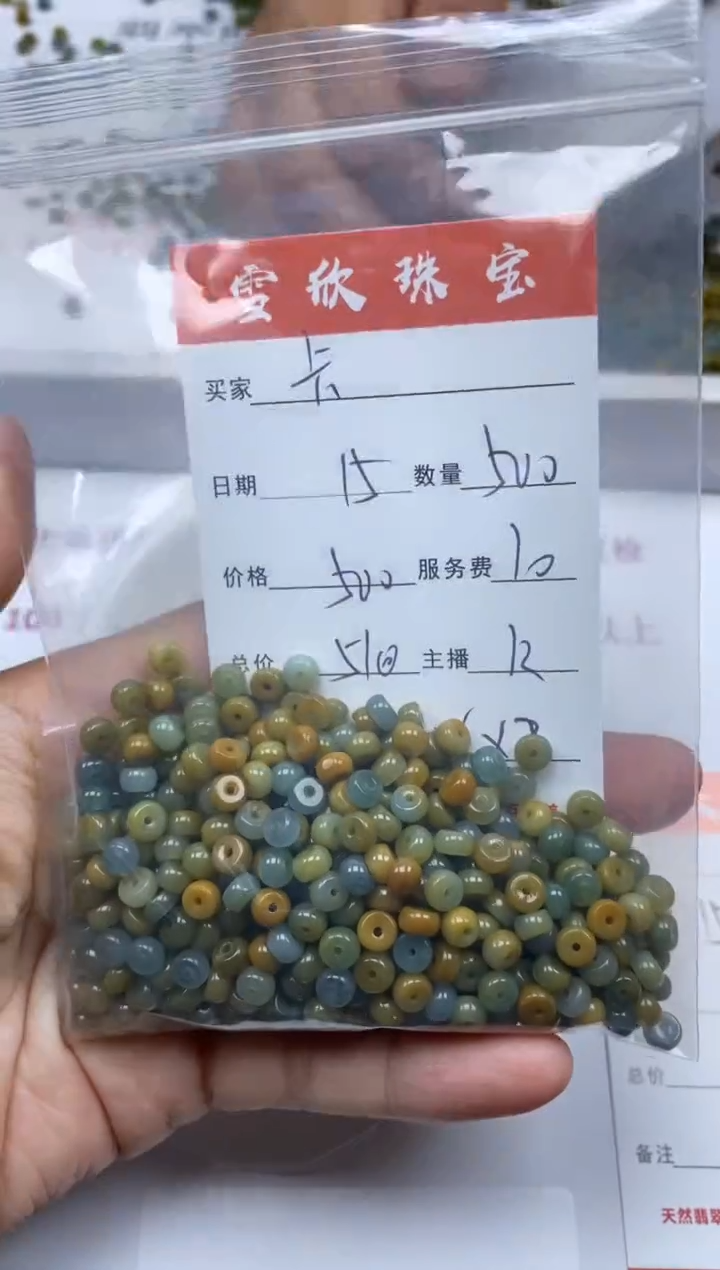 雪欣珠宝
买家 卡
日期 15 数量 500
价格 500 服务费 10
总价 510 主播 12
总价
备注
天然翡翠